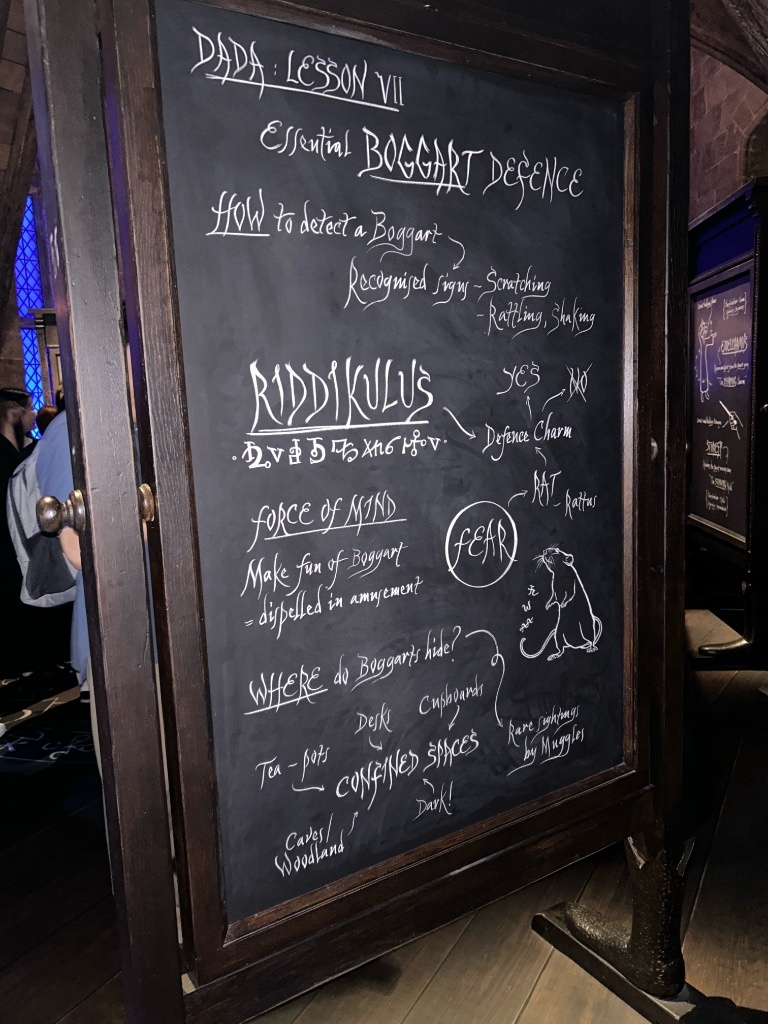 DADA : LESSON VII
Essential BOGGART DEFENCE
HOW to detect a Boggart
Recognised signs - Scratching
- Rattling, Shaking
RIDDIKULUS
YES
NO
Defence Charm
RAT
Rattus
FORCE OF MIND
FEAR
Make fun of Boggart
= dispelled in amusement
WHERE do Boggarts hide?
Rare sightings
by Muggles
Desks
Cupboards
Tea-pots
CONFINED SPACES
Dark!
Caves/
Woodland